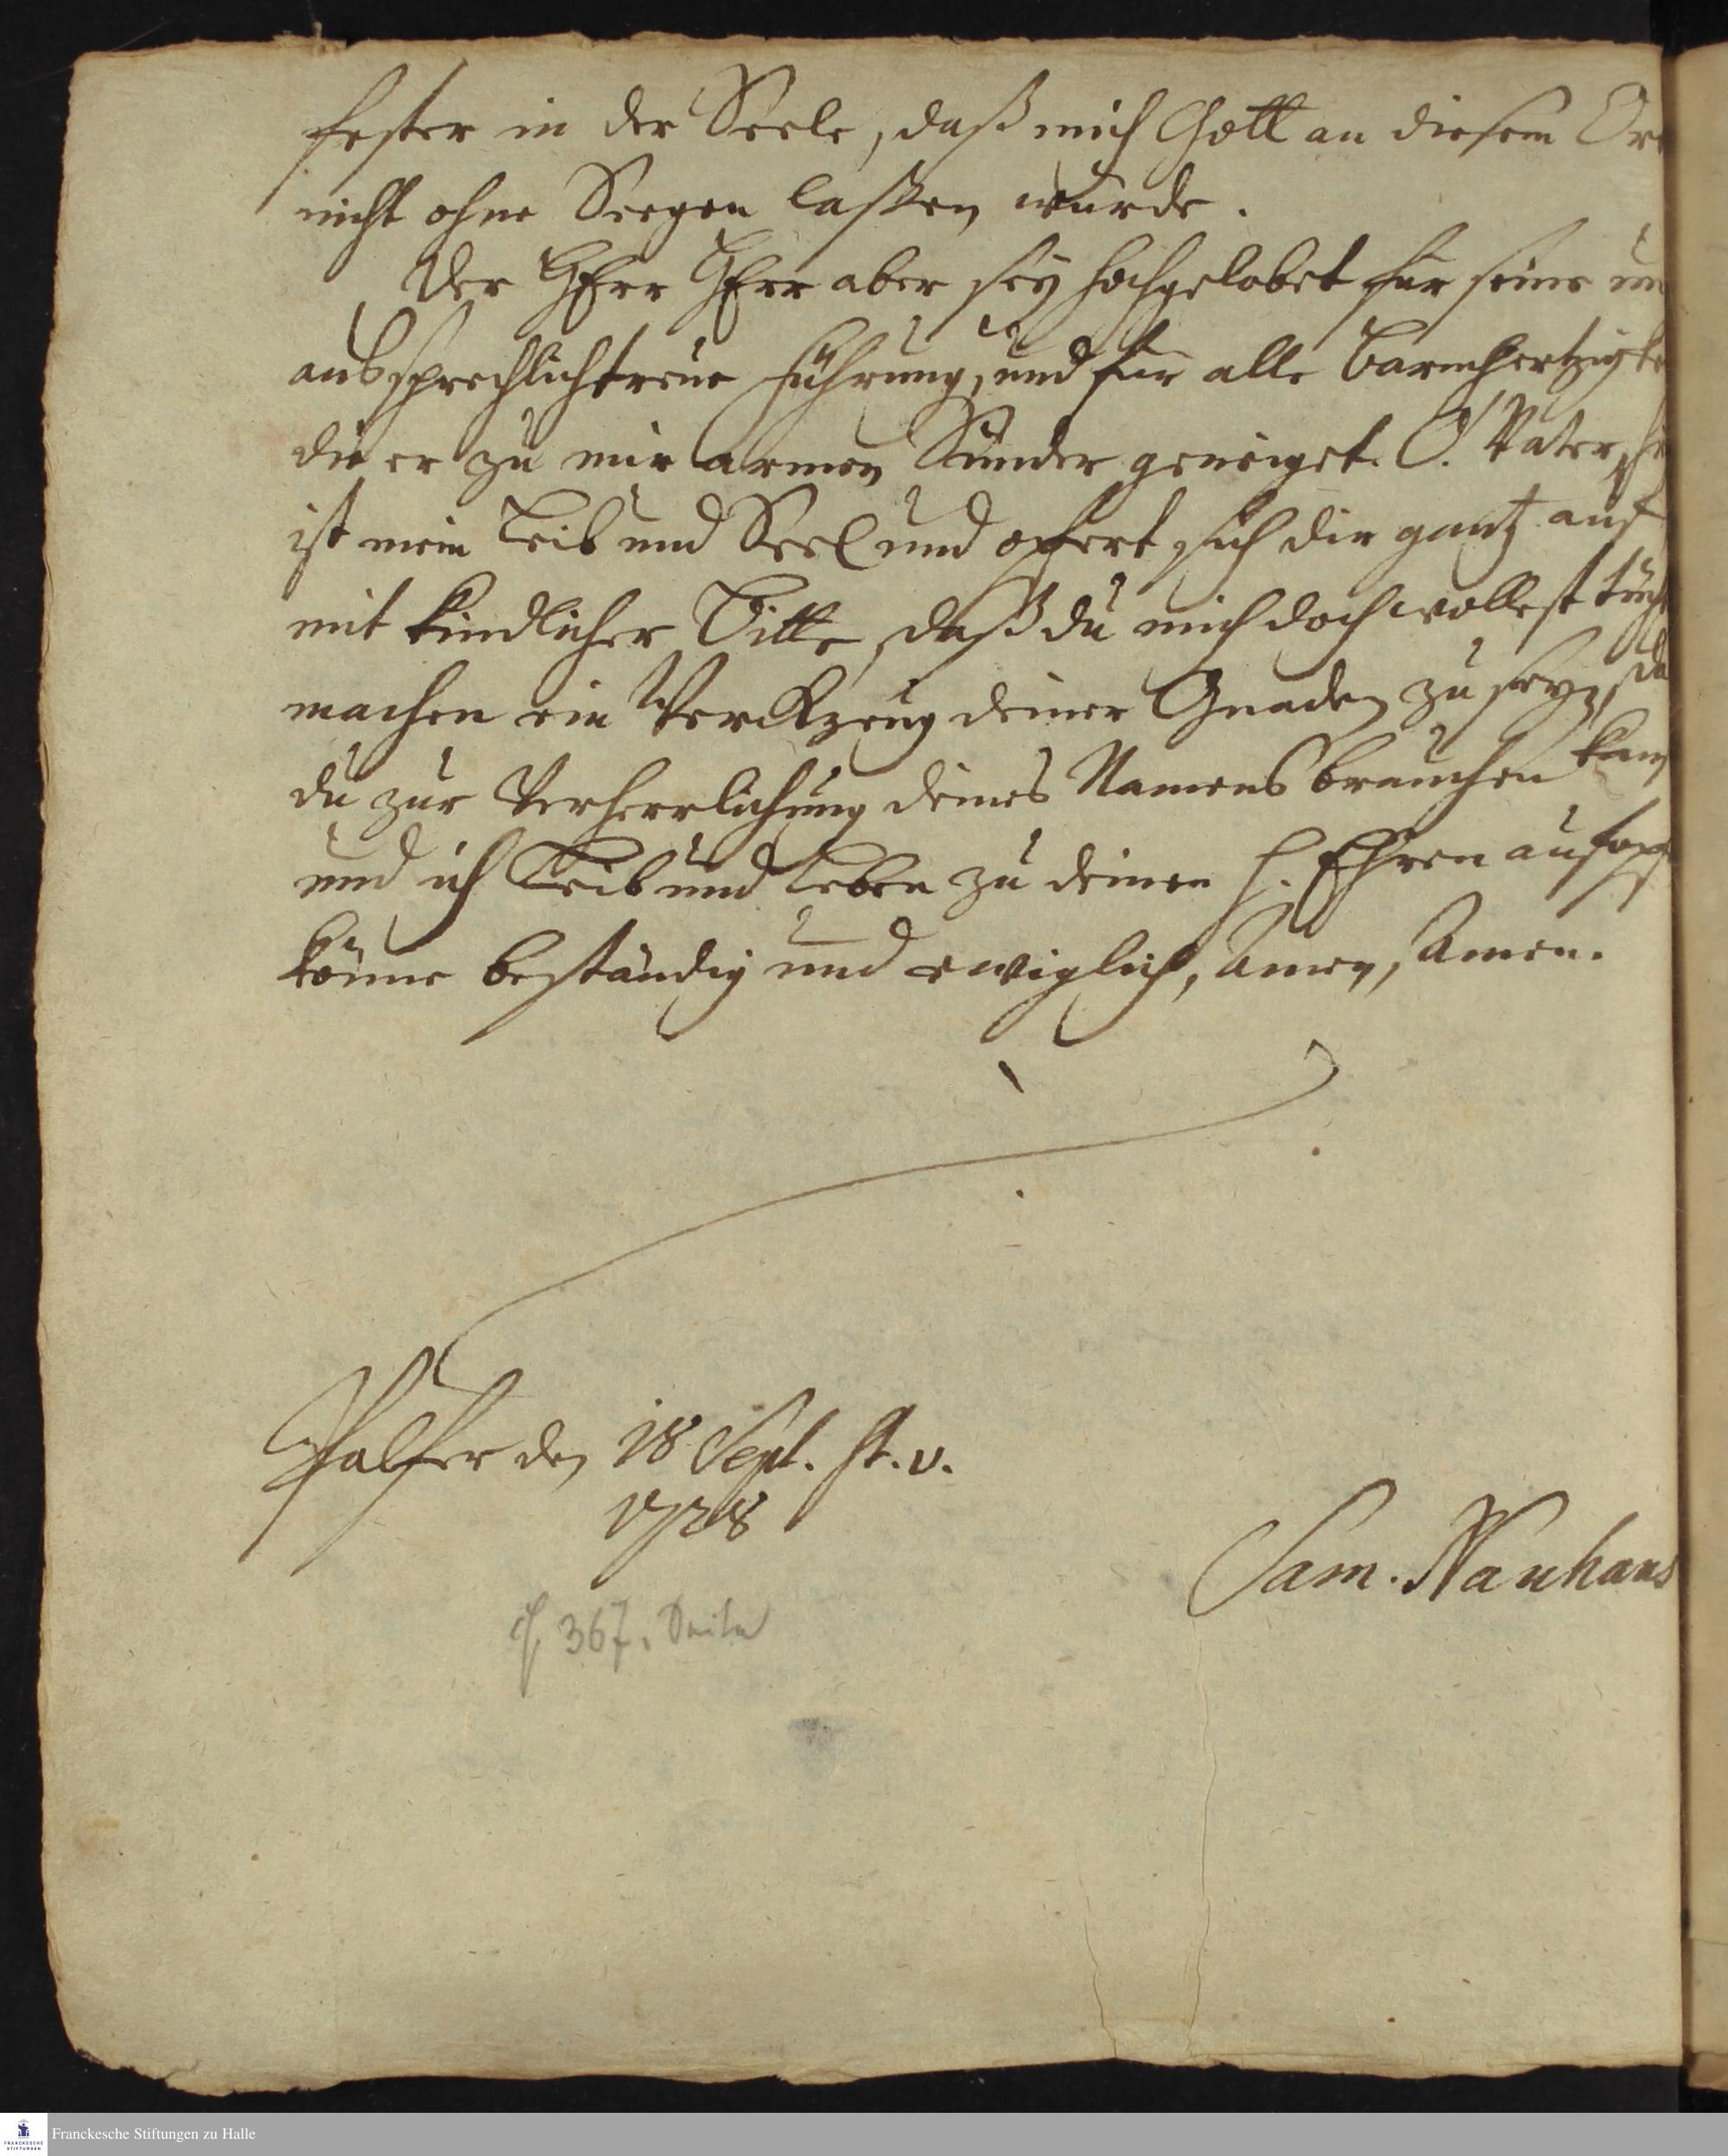 fester in der Seele, daß mich Gott an diesem Ort
nicht ohne Seegen laßen würde.
Der HErr HErr aber sey hochgelobet für seine un
aussprechlichtreüe Führung, und für alle Barmhertzigke
die er zu mir armen Sünder geneiget. O! Vater, hi
ist mein Leib und Seel und opfert sich dir gantz auf
mit kindlicher Bitte, daß du mich doch wollest tücht
machen ein Werckzeug deiner Gnaden zu seyn, da
du zur Verherrlichung deines Namens brauchen kan
und ich Leib und Leben zu deinen h. Ehren aufopf
könne beständig und ewiglich, Amen, Amen.
den 18 Sept. st. v.
1728
Sam. Nauhaus
367. Seite
Franckesche Stiftungen zu Halle
FRANCKESCHE
STIFTUNGEN